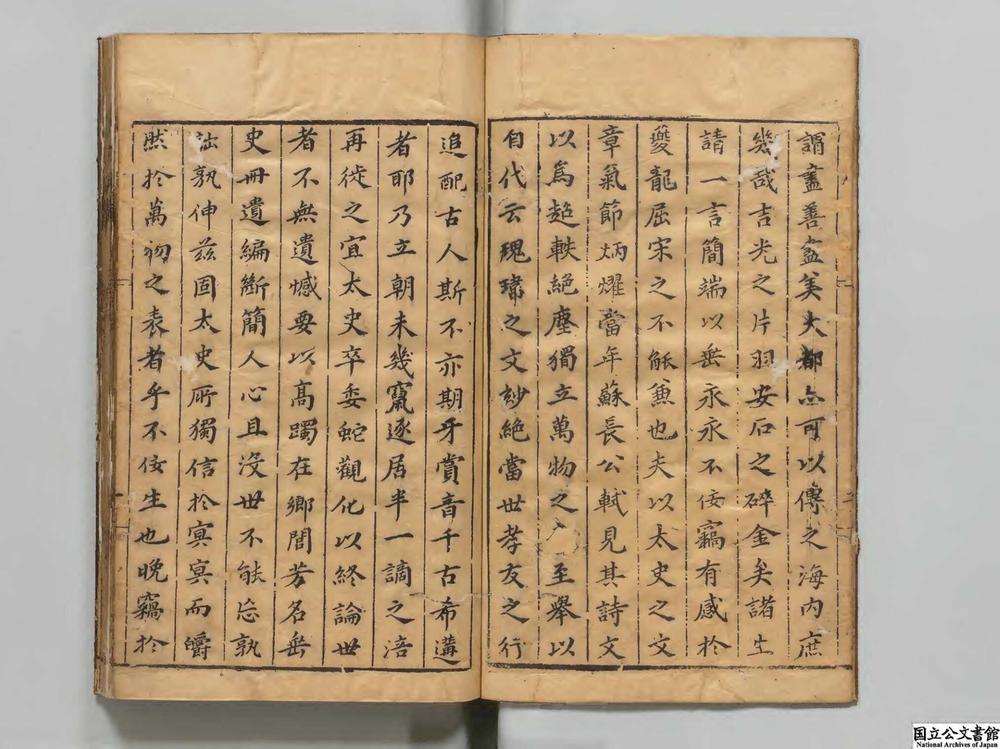 謂盡善盡美大都亦可以傳之海内庶
幾哉吉光之片羽安石之碎金矣諸生
請一言簡端以垂永永不佞竊有感於
夔龍屈宋之不能兼也夫以太史之文
章氣節炳燿當年蘇長公軾見其詩文
以為超軼絕塵獨立萬物之至舉以
自代云瑰瑋之文妙絕當世孝友之行
追配古人斯不亦期牙賞音千古希遘
者耶乃立朝未幾竄逐居半一謫之涪
再徙之宜太史卒委蛇觀化以終論世
者不無遺憾要以高躅在鄉閭芳名垂
史冊遺編斷簡人心且沒世不能忘孰
詘孰伸兹固太史所獨信於冥冥而皭
然於萬物之表者乎不佞生也晚竊於
国立公文書館
National Archives of Japan